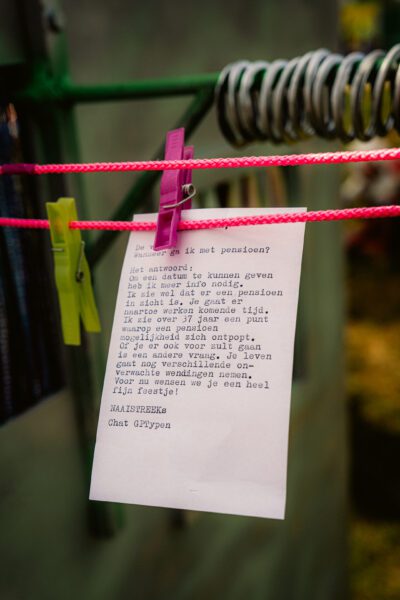 De
Wanneer ga ik met pensioen?
Het antwoord:
Om een datum te kunnen geven
heb ik meer info nodig.
Ik zie wel dat er een pensioen
in zicht is. Je gaat er
naartoe werken komende tijd.
Ik zie over 37 jaar een punt
waarop een pensioen
mogelijkheid zich ontpopt.
Of je er ook voor zult gaan
is een andere vraag. Je leven
gaat nog verschillende on-
verwachte wendingen nemen.
Voor nu wensen we je een heel
fijn feestje!
NAAISTREEKS
Chat GPTypen